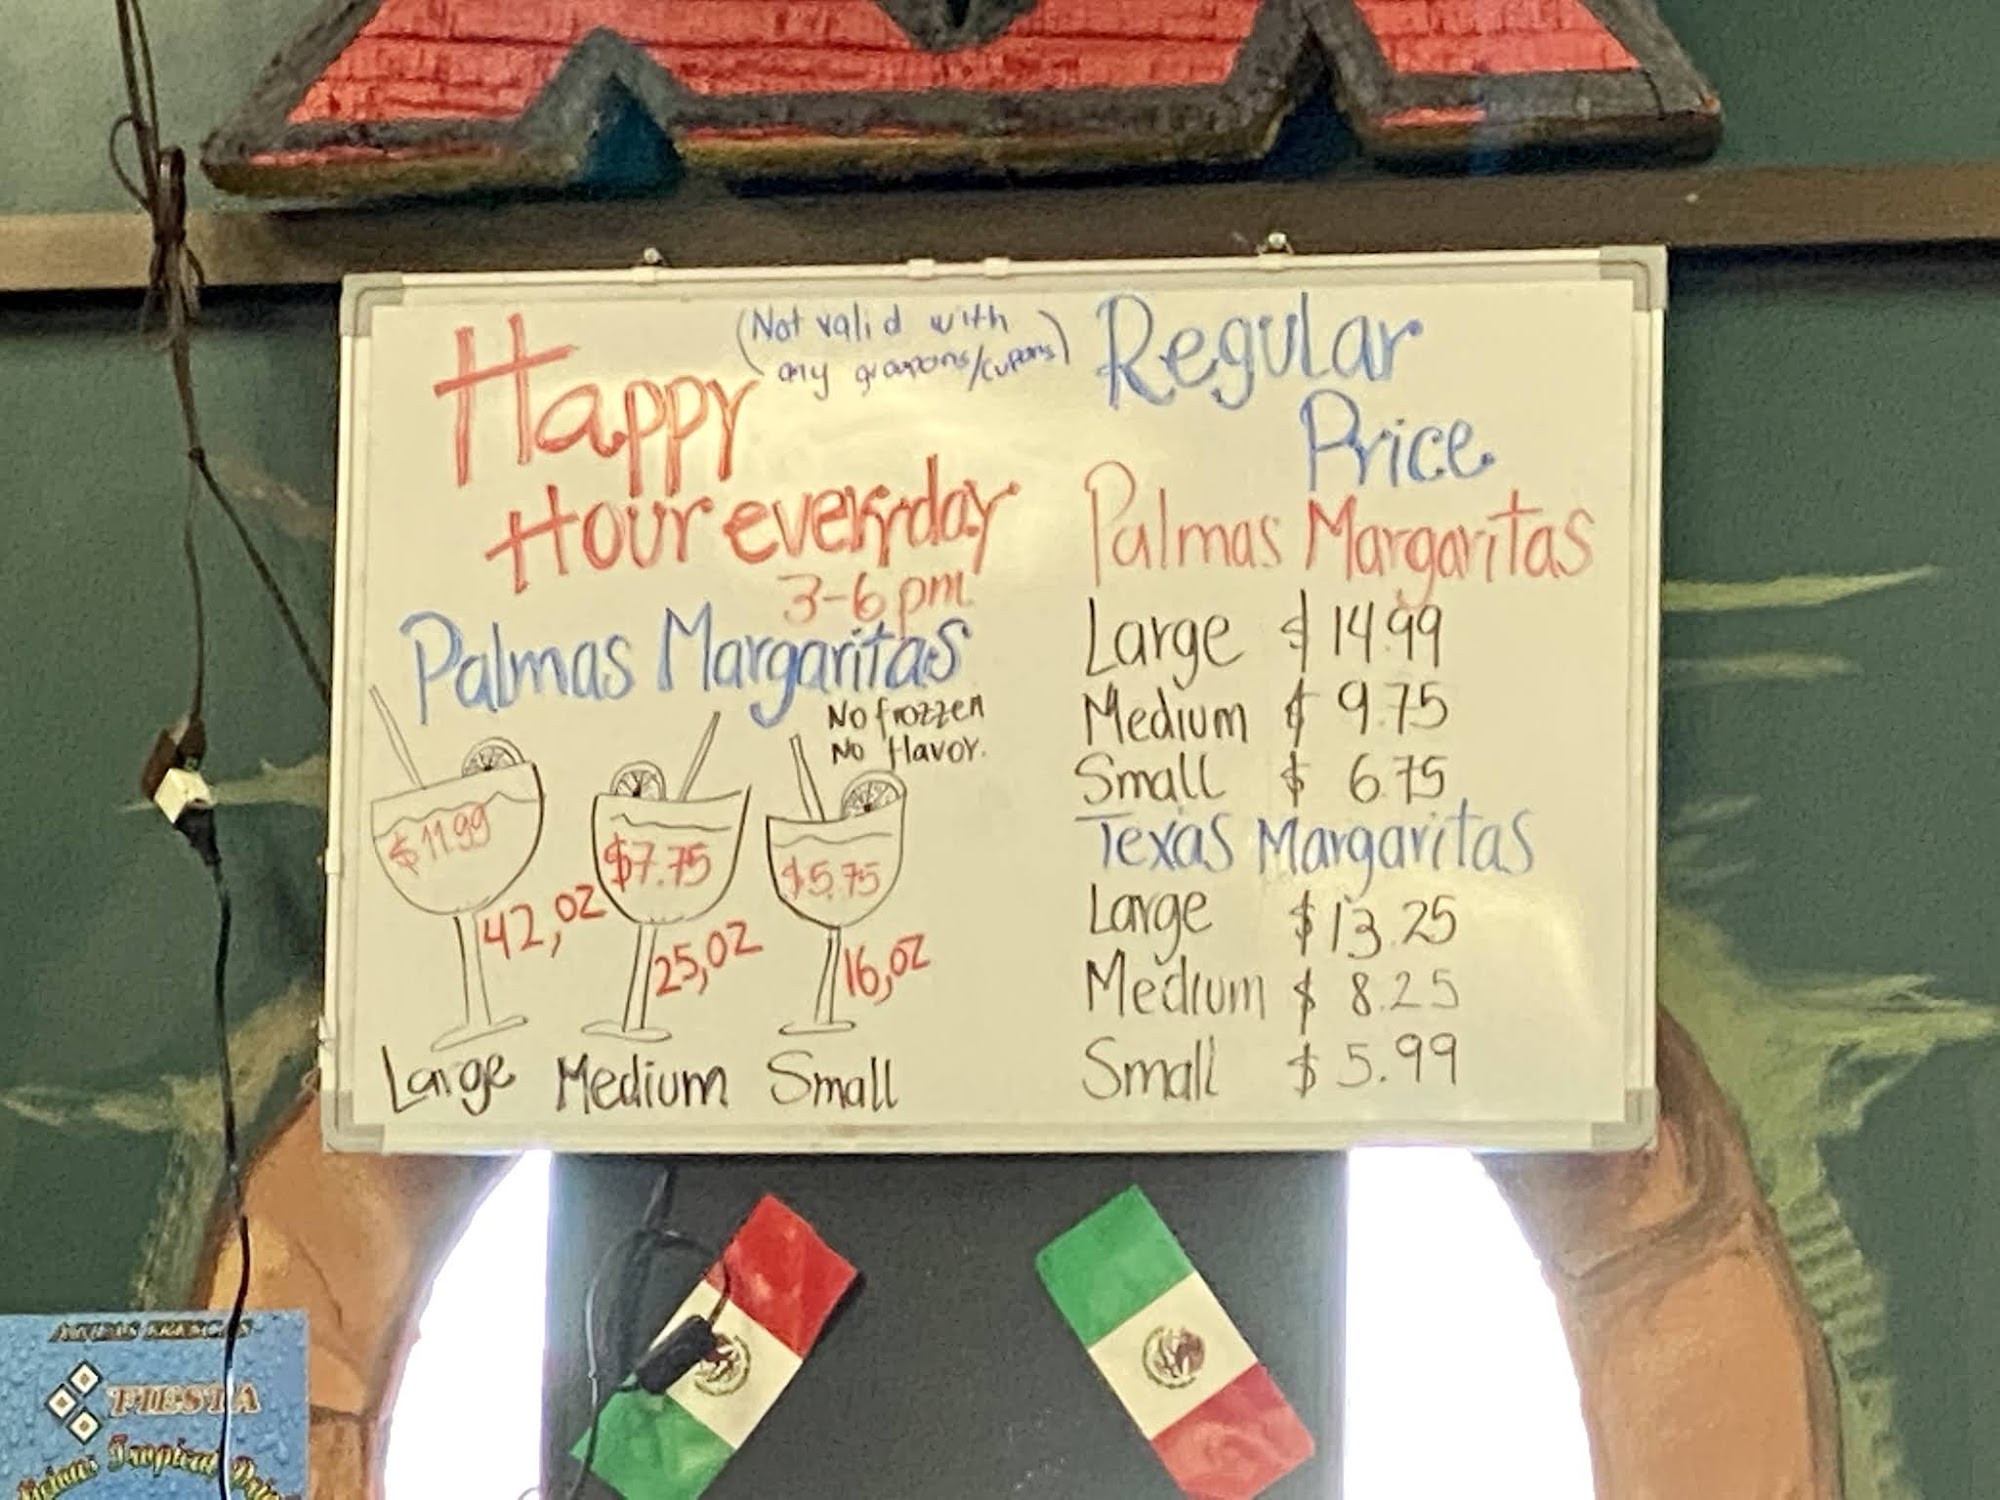 Happy
(Not valid with
any groupons/cupons)
Hour everyday
3-6 pm
Palmas Margaritas
No frozzen
No flavor.
$11.99
$7.75
$5.75
42,oz
25,oz
16,oz
Large Medium Small
Regular
Price
Palmas Margaritas
Large $ 14.99
Medium $ 9.75
Small $ 6.75
Texas Margaritas
Large $ 13.25
Medium $ 8.25
Small $ 5.99
AGUAS FRESCAS
FIESTA
Tropical